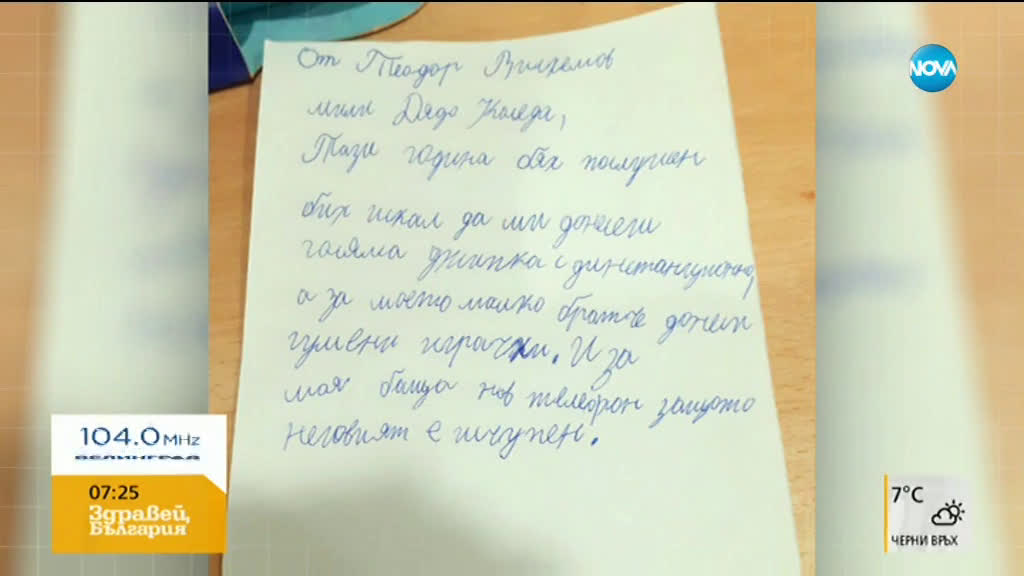 От Теодор Вилхемов
мили Дядо Коледа,
Тази година бях послушен
бих искал да ми донесеш
голяма джипка с
а за моето малко братче донеси
гумени играчки. И за
мая баща нов телефон защото
неговият е счупен.
NOVA
104.0 MHz
ВЕЛИНГРАД
07:25
Здравей,
България
7°C
ЧЕРНИ ВРЪХ